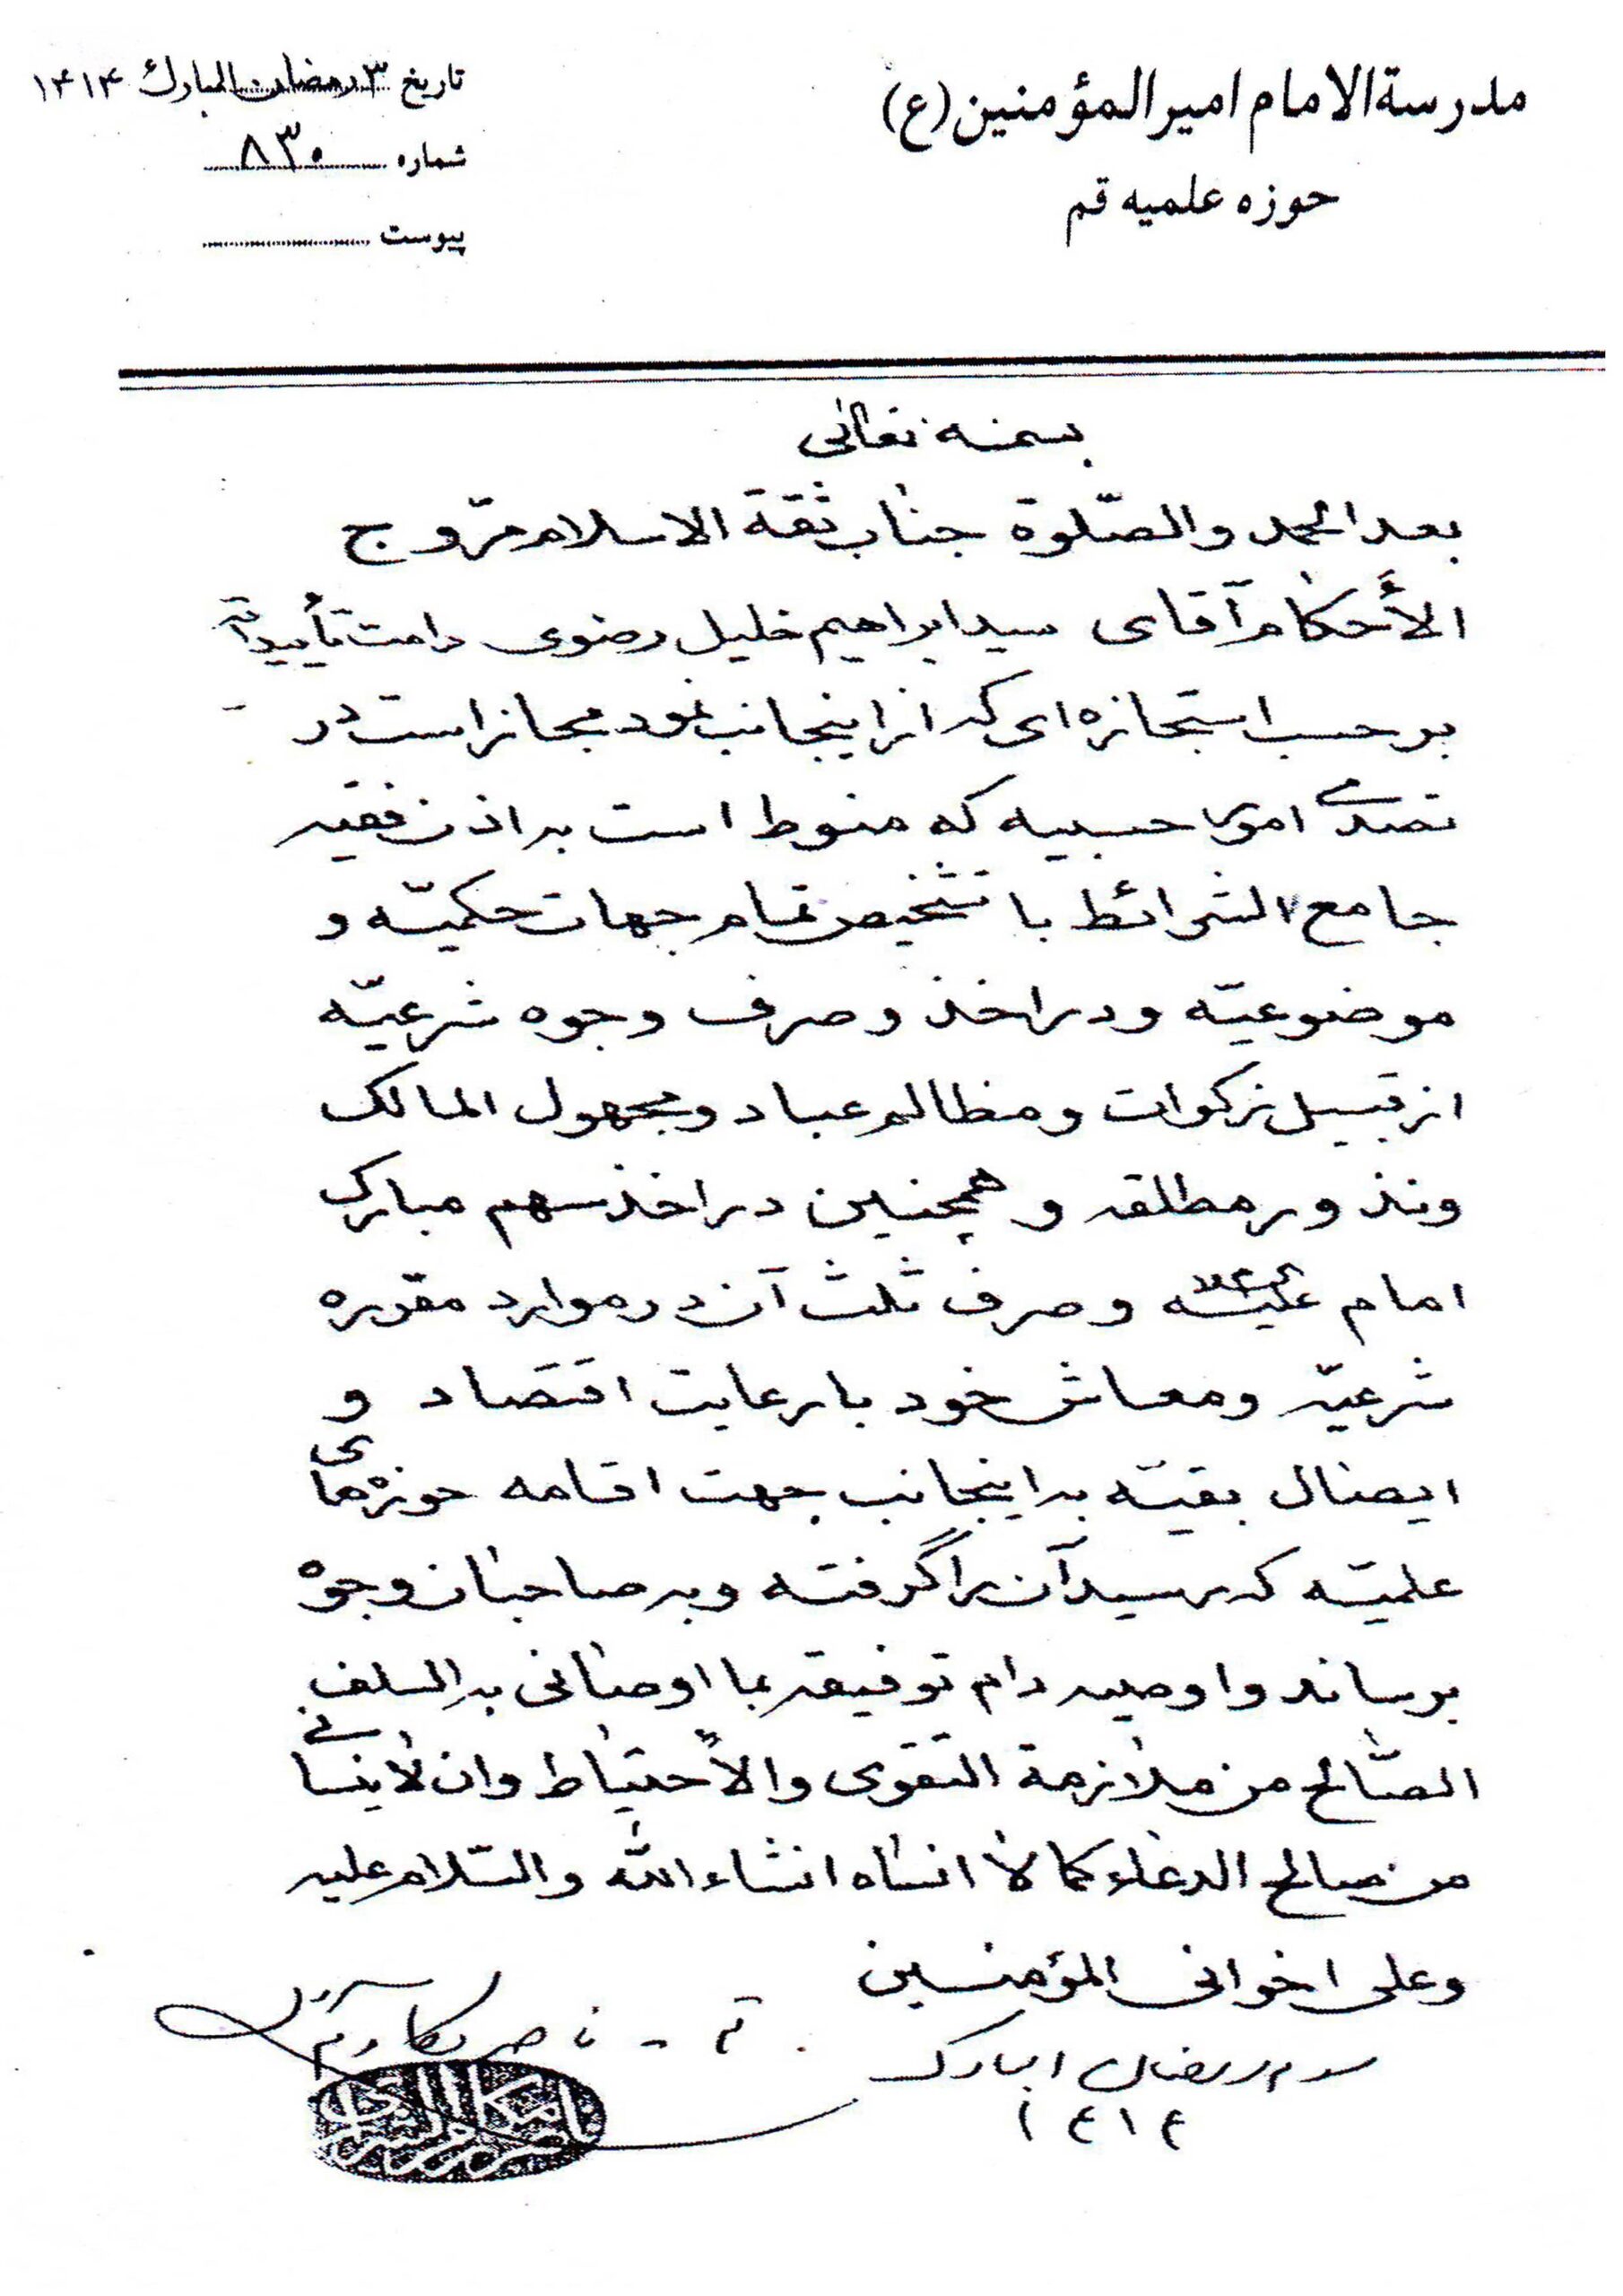 مدرسة الامام امیرالمؤمنین (ع)
حوزه علمیه قم
تاریخ ۳ رمضان المبارک ۱۴۱۴
شماره ۸۳۰
پیوست
بسمه تعالی
بعد الحمد والصّلوة جناب ثقة الاسلام مروّج
الأحکام آقای سید ابراهیم خلیل رضوی دامت تأییداته
بر حسب استجازه ای که از اینجانب نمود مجاز است در
تصدی امور حسبیه که منوط است به اذن فقیه
جامع الشرائط با تشخیص تمام جهات حکمیّه و
موضوعیّه و در اخذ و صرف وجوه شرعیّه
از قبیل زکوات و مظالم عباد و مجهول المالک
و نذور مطلقه و همچنین در اخذ سهم مبارک
امام علیه السلام و صرف ثلث آن در موارد مقرّره
شرعیّه و معاش خود با رعایت اقتصاد و
ایصال بقیّه به اینجانب جهت اقامه حوزه های
علمیّه که رسید آن را گرفته و به صاحبان وجوه
برساند و اوصیه دام توفیقه بما اوصانی به السلف
الصّالح من ملازمة التقوی والأحتیاط وان لاینسانی
من صالح الدعاء کما لا انساه انشاء الله والسّلام علیه
وعلی اخوانی المؤمنین
قم - ناصر مکارم
سوم رمضان المبارک
۱۴۱۴